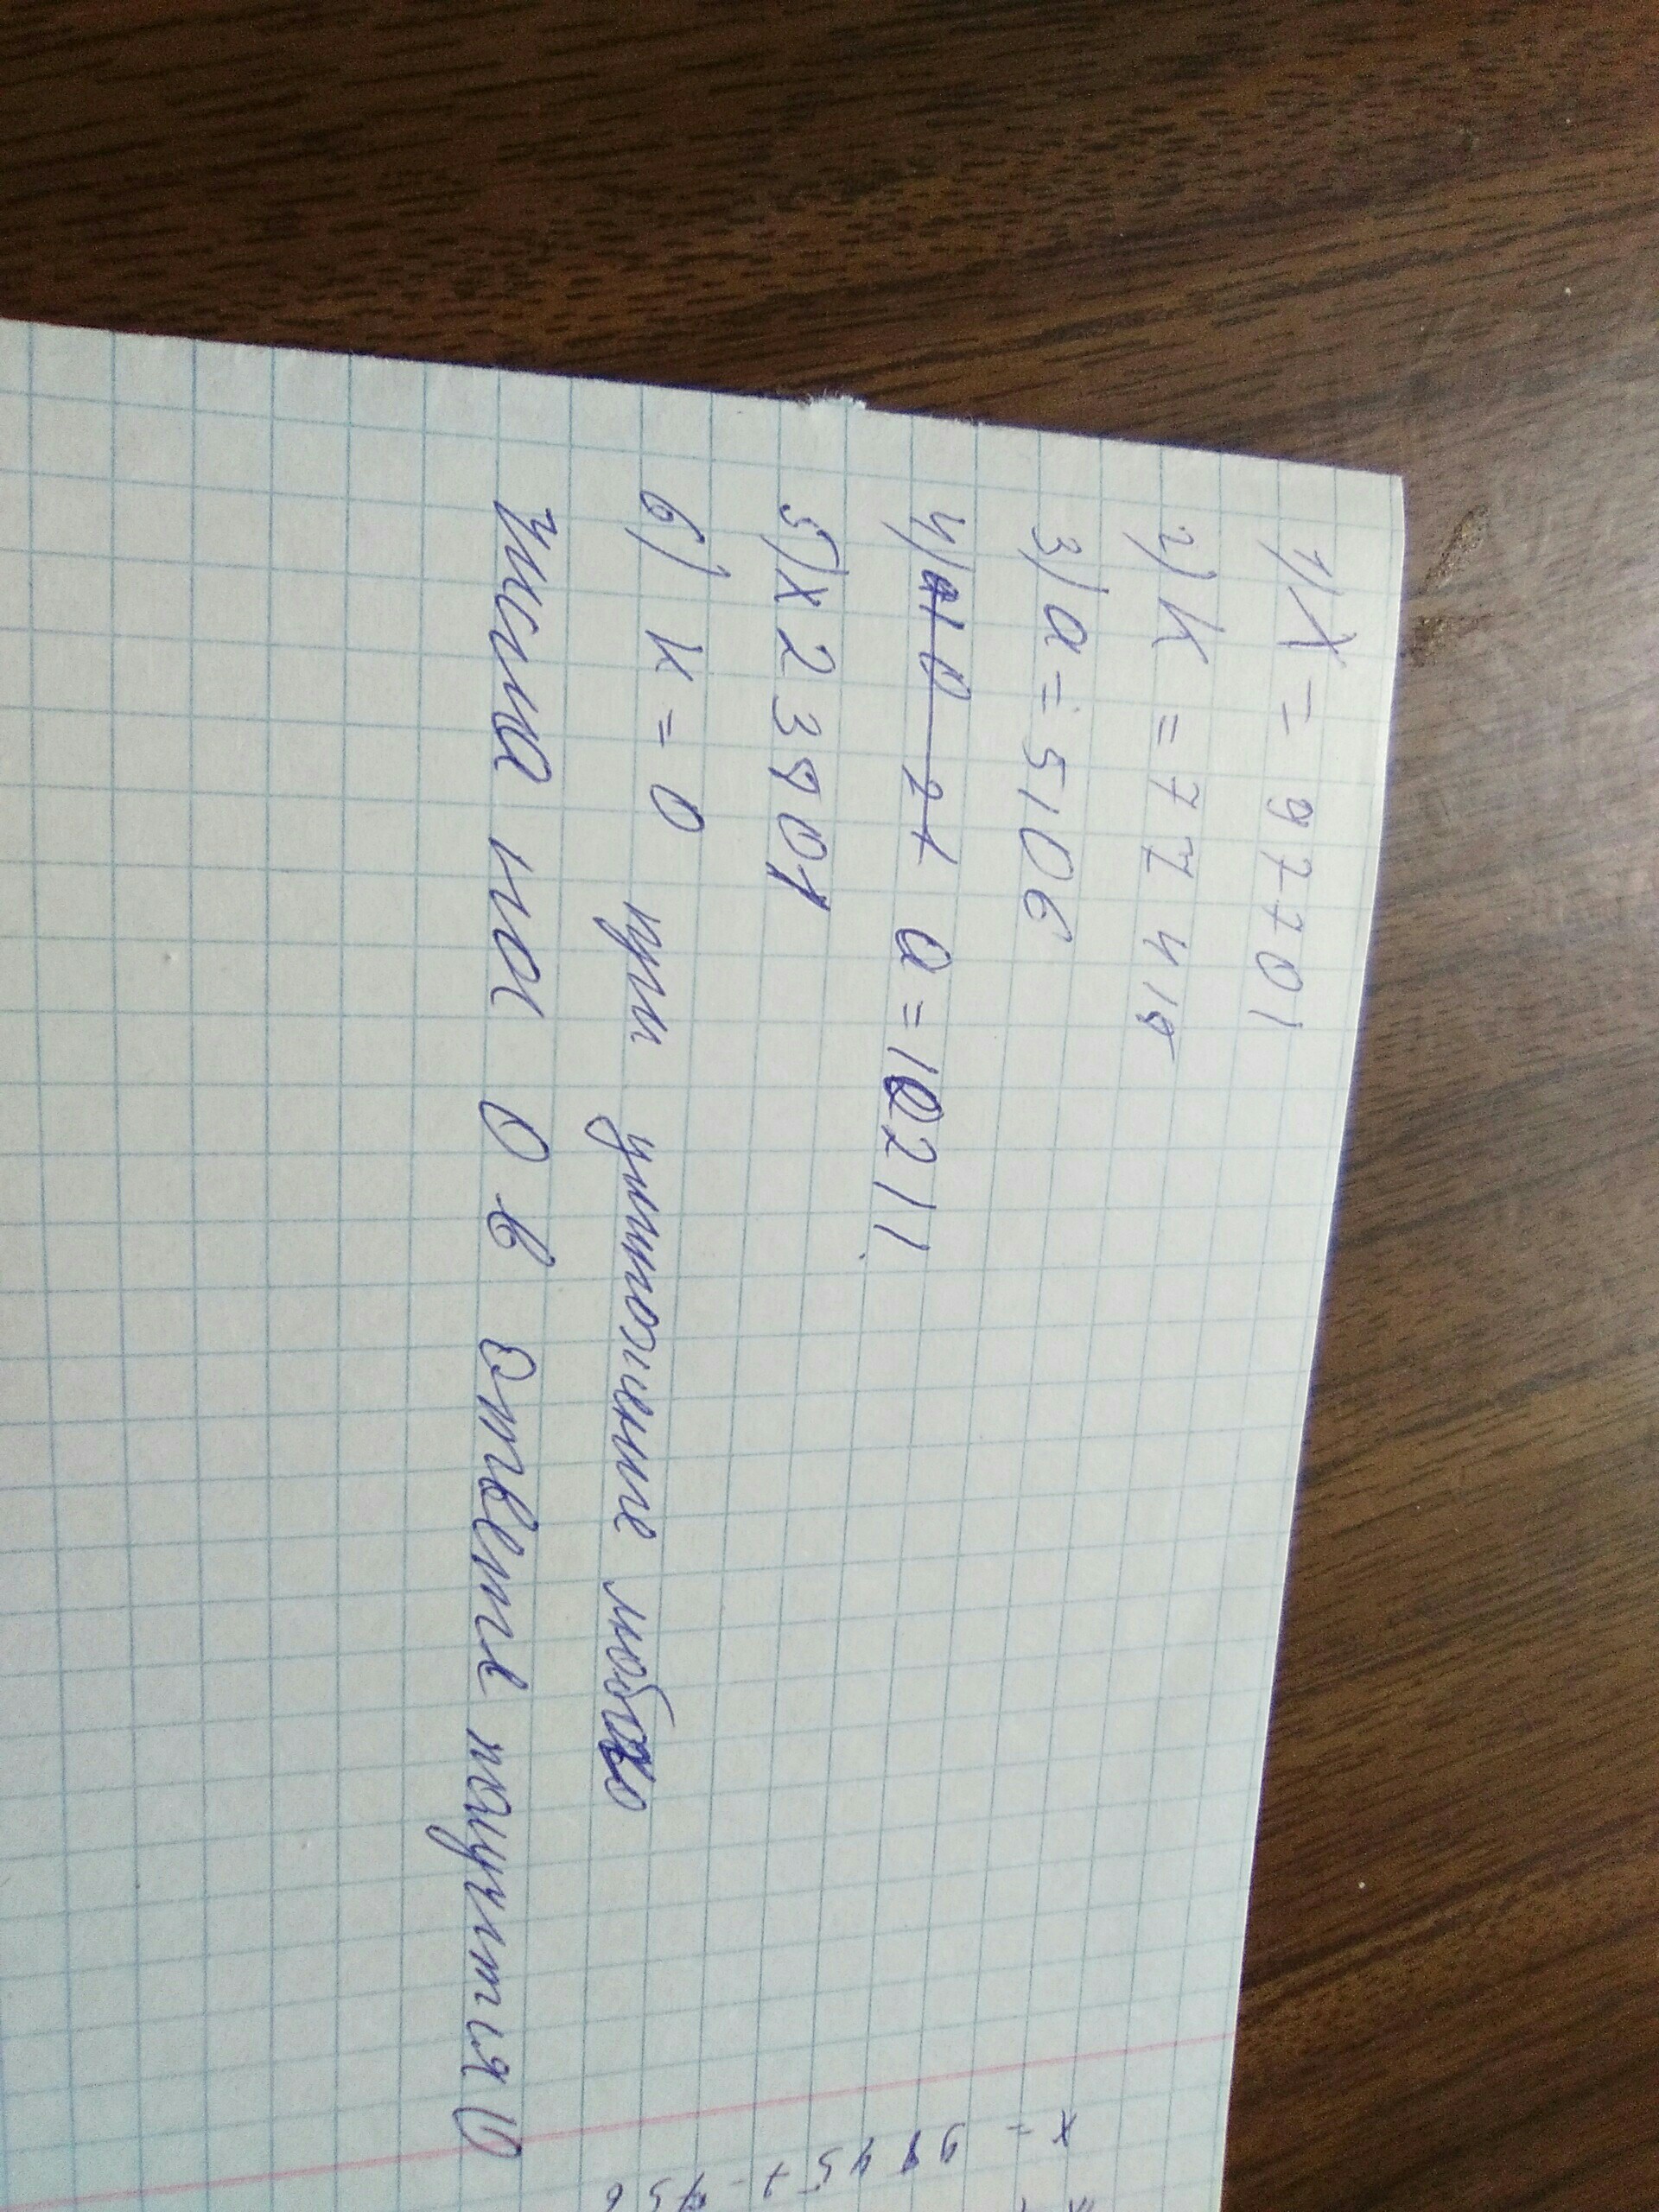 1) x = 97701
2) k = 77418
3) a = 5106
4) a = 10211
5) x 23901
6) k = 0 при умножение любого
числа на 0 в ответе получится 0
x =